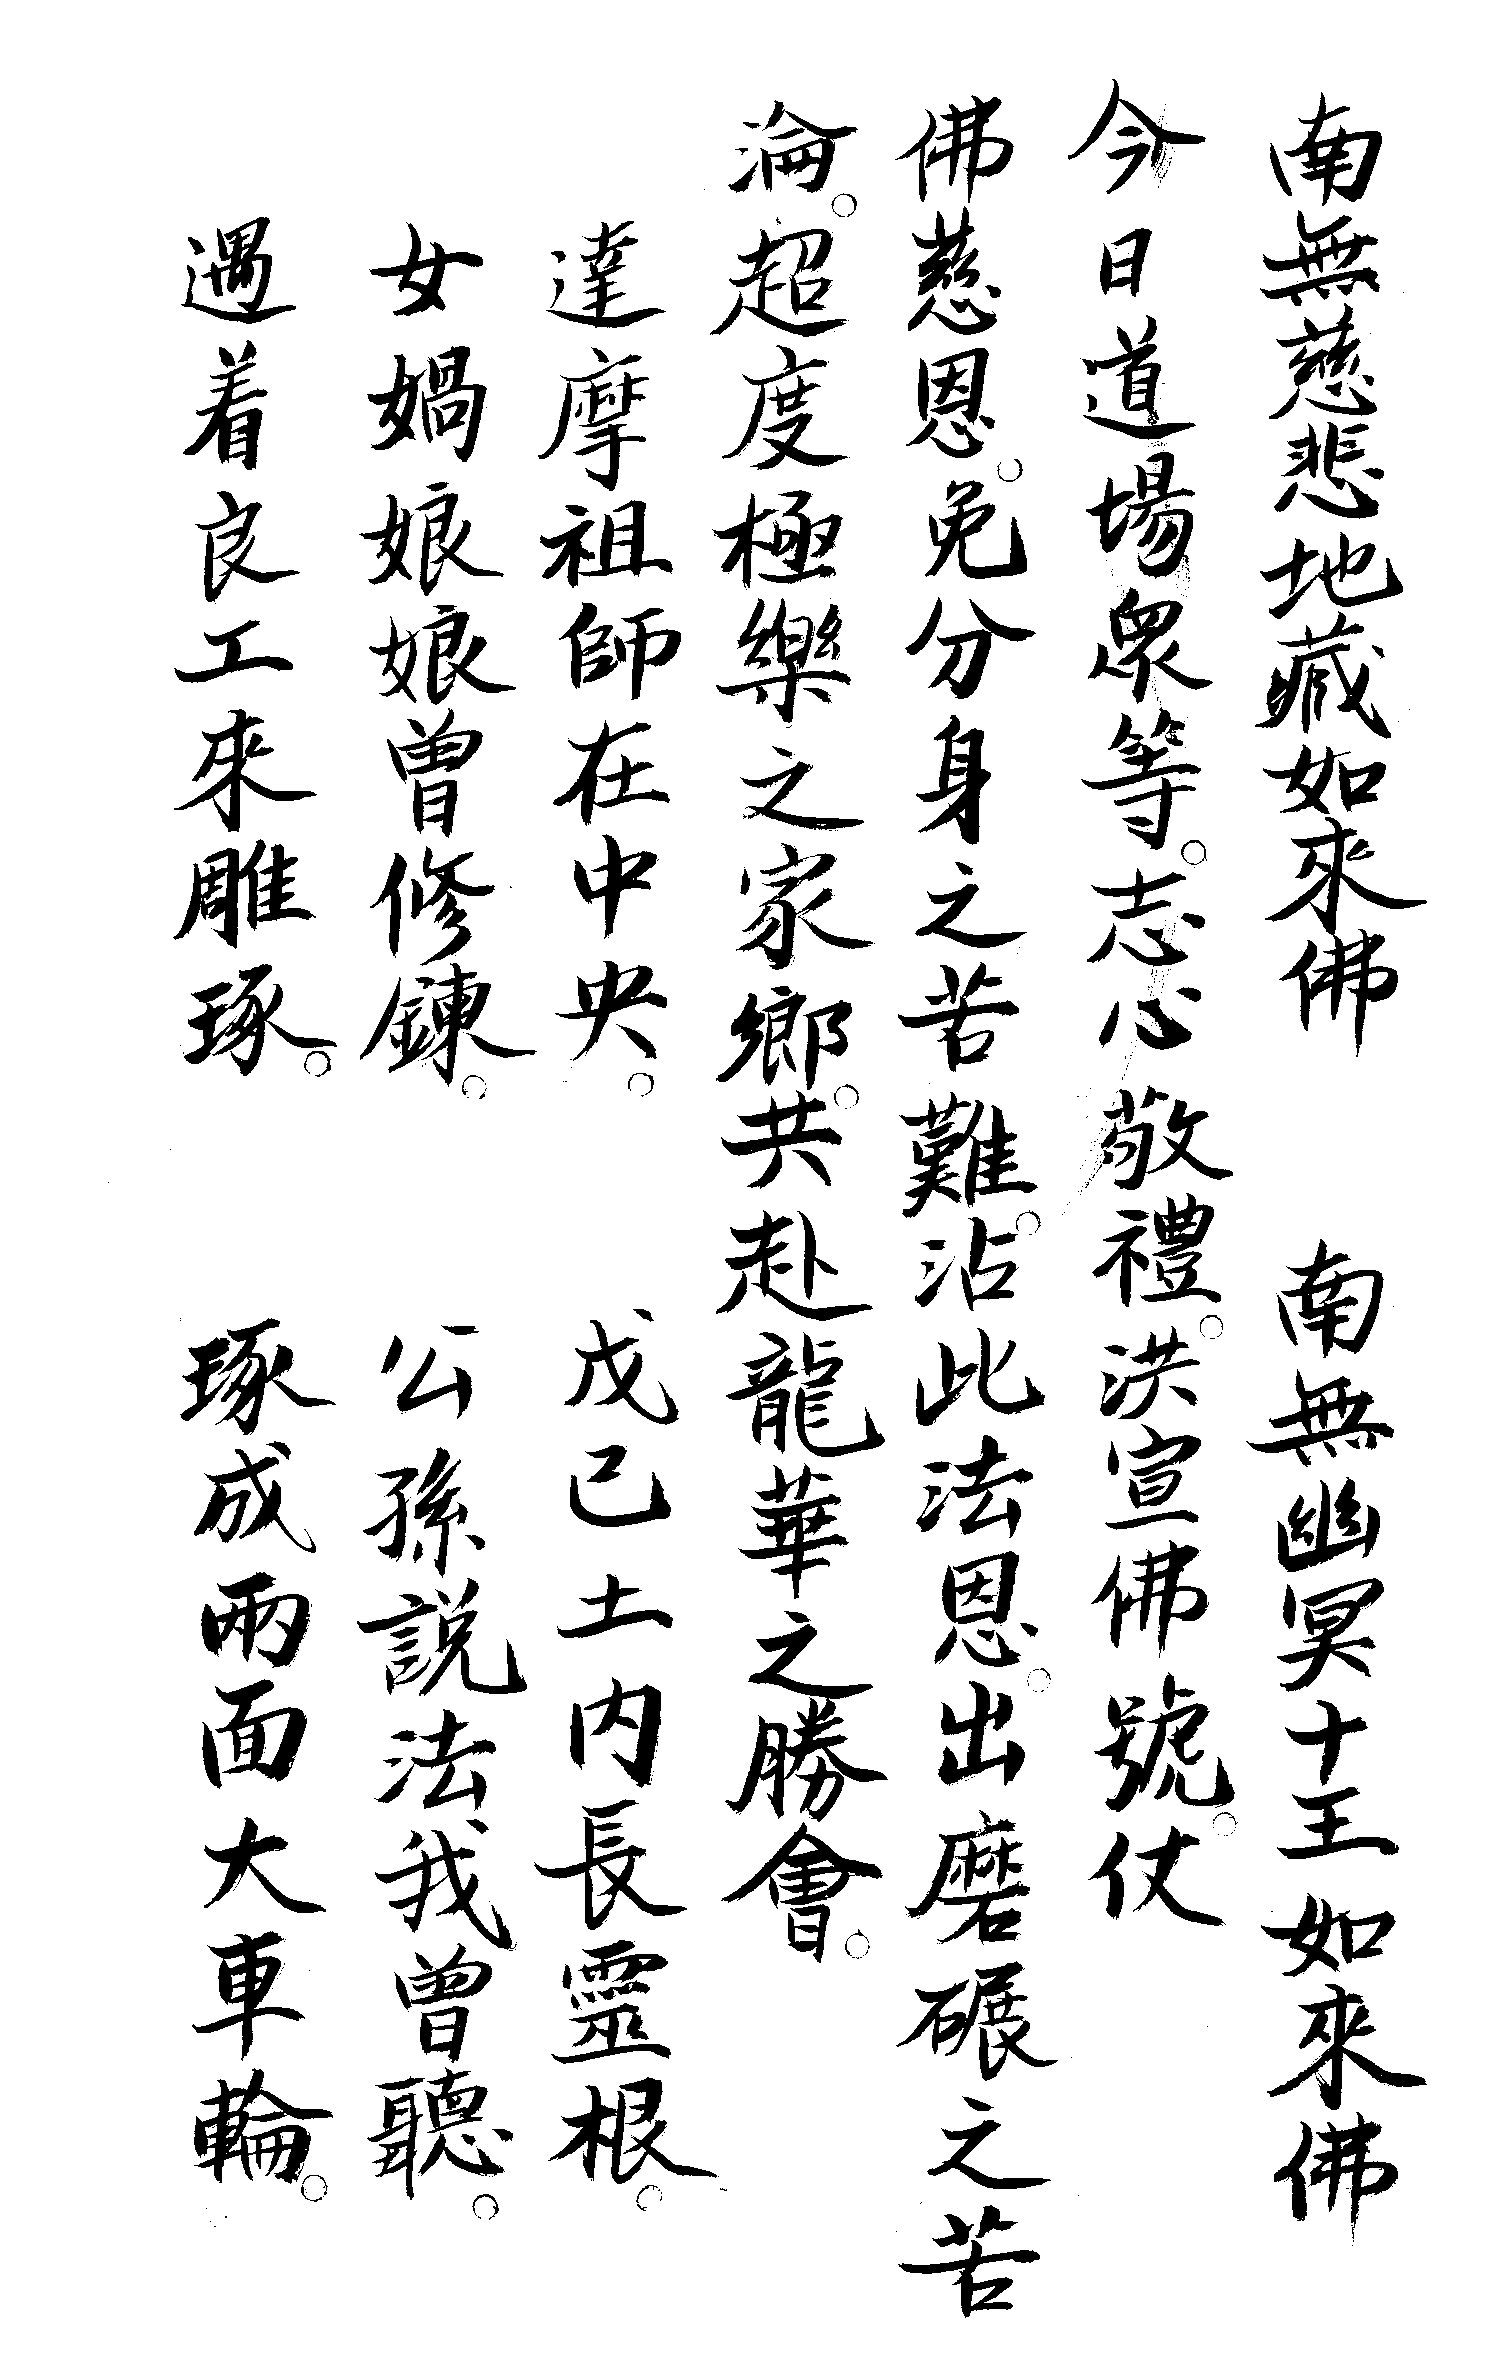 南無慈悲地藏如來佛　南無幽冥十王如來佛
今日道場眾等。志心敬禮。洪宣佛號。仗
佛慈恩。免分身之苦難。沾此法恩。出磨碾之苦
淪。超度極樂之家鄉。共赴龍華之勝會。
達摩祖師在中央。　戊己土内長靈根。
女媧娘娘曾修鍊。　公孫説法我曾聽。
遇着良工來雕琢。　琢成兩面大車輪。